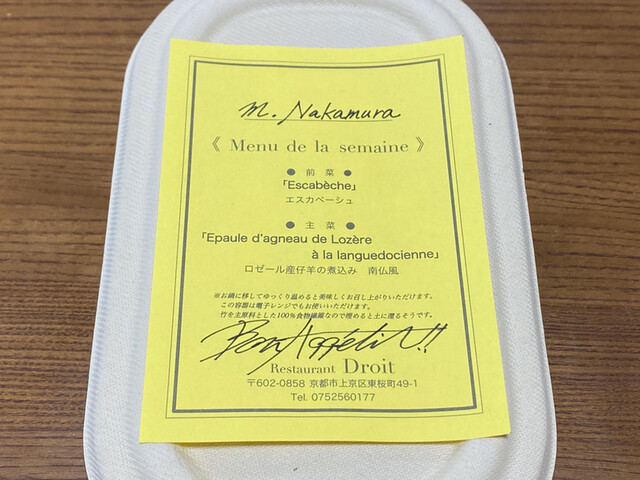 M. Nakamura
《 Menu de la semaine 》
● 前 菜 ●
「Escabèche」
エスカベーシュ
● 主 菜 ●
「Epaule d'agneau de Lozère
à la languedocienne」
ロゼール産仔羊の煮込み 南仏風
※お鍋に移してゆっくり温めると美味しくお召し上がりいただけます。
この容器は電子レンジでもお使いいただけます。
竹を主原料とした100%食物繊維なので埋めると土に還るそうです。
Bon Appétit!!
Restaurant Droit
〒602-0858 京都市上京区東桜町49-1
Tel. 0752560177